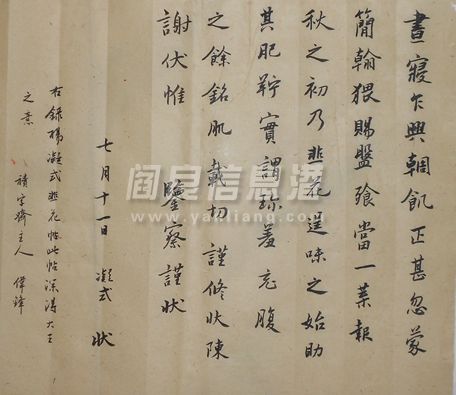 晝寢乍興輖飢正甚忽蒙
簡翰猥賜盤飧當一葉報
秋之初乃韭花逞味之始助
其肥羜實謂珍羞充腹
之餘銘肌載切謹修狀陳
謝伏惟 鑒察謹狀
七月十一日 凝式 狀
右錄楊凝式韭花帖此帖深得大王
之意
積宇齋主人 偉鋒
阎良信息港
www.yanliang.com